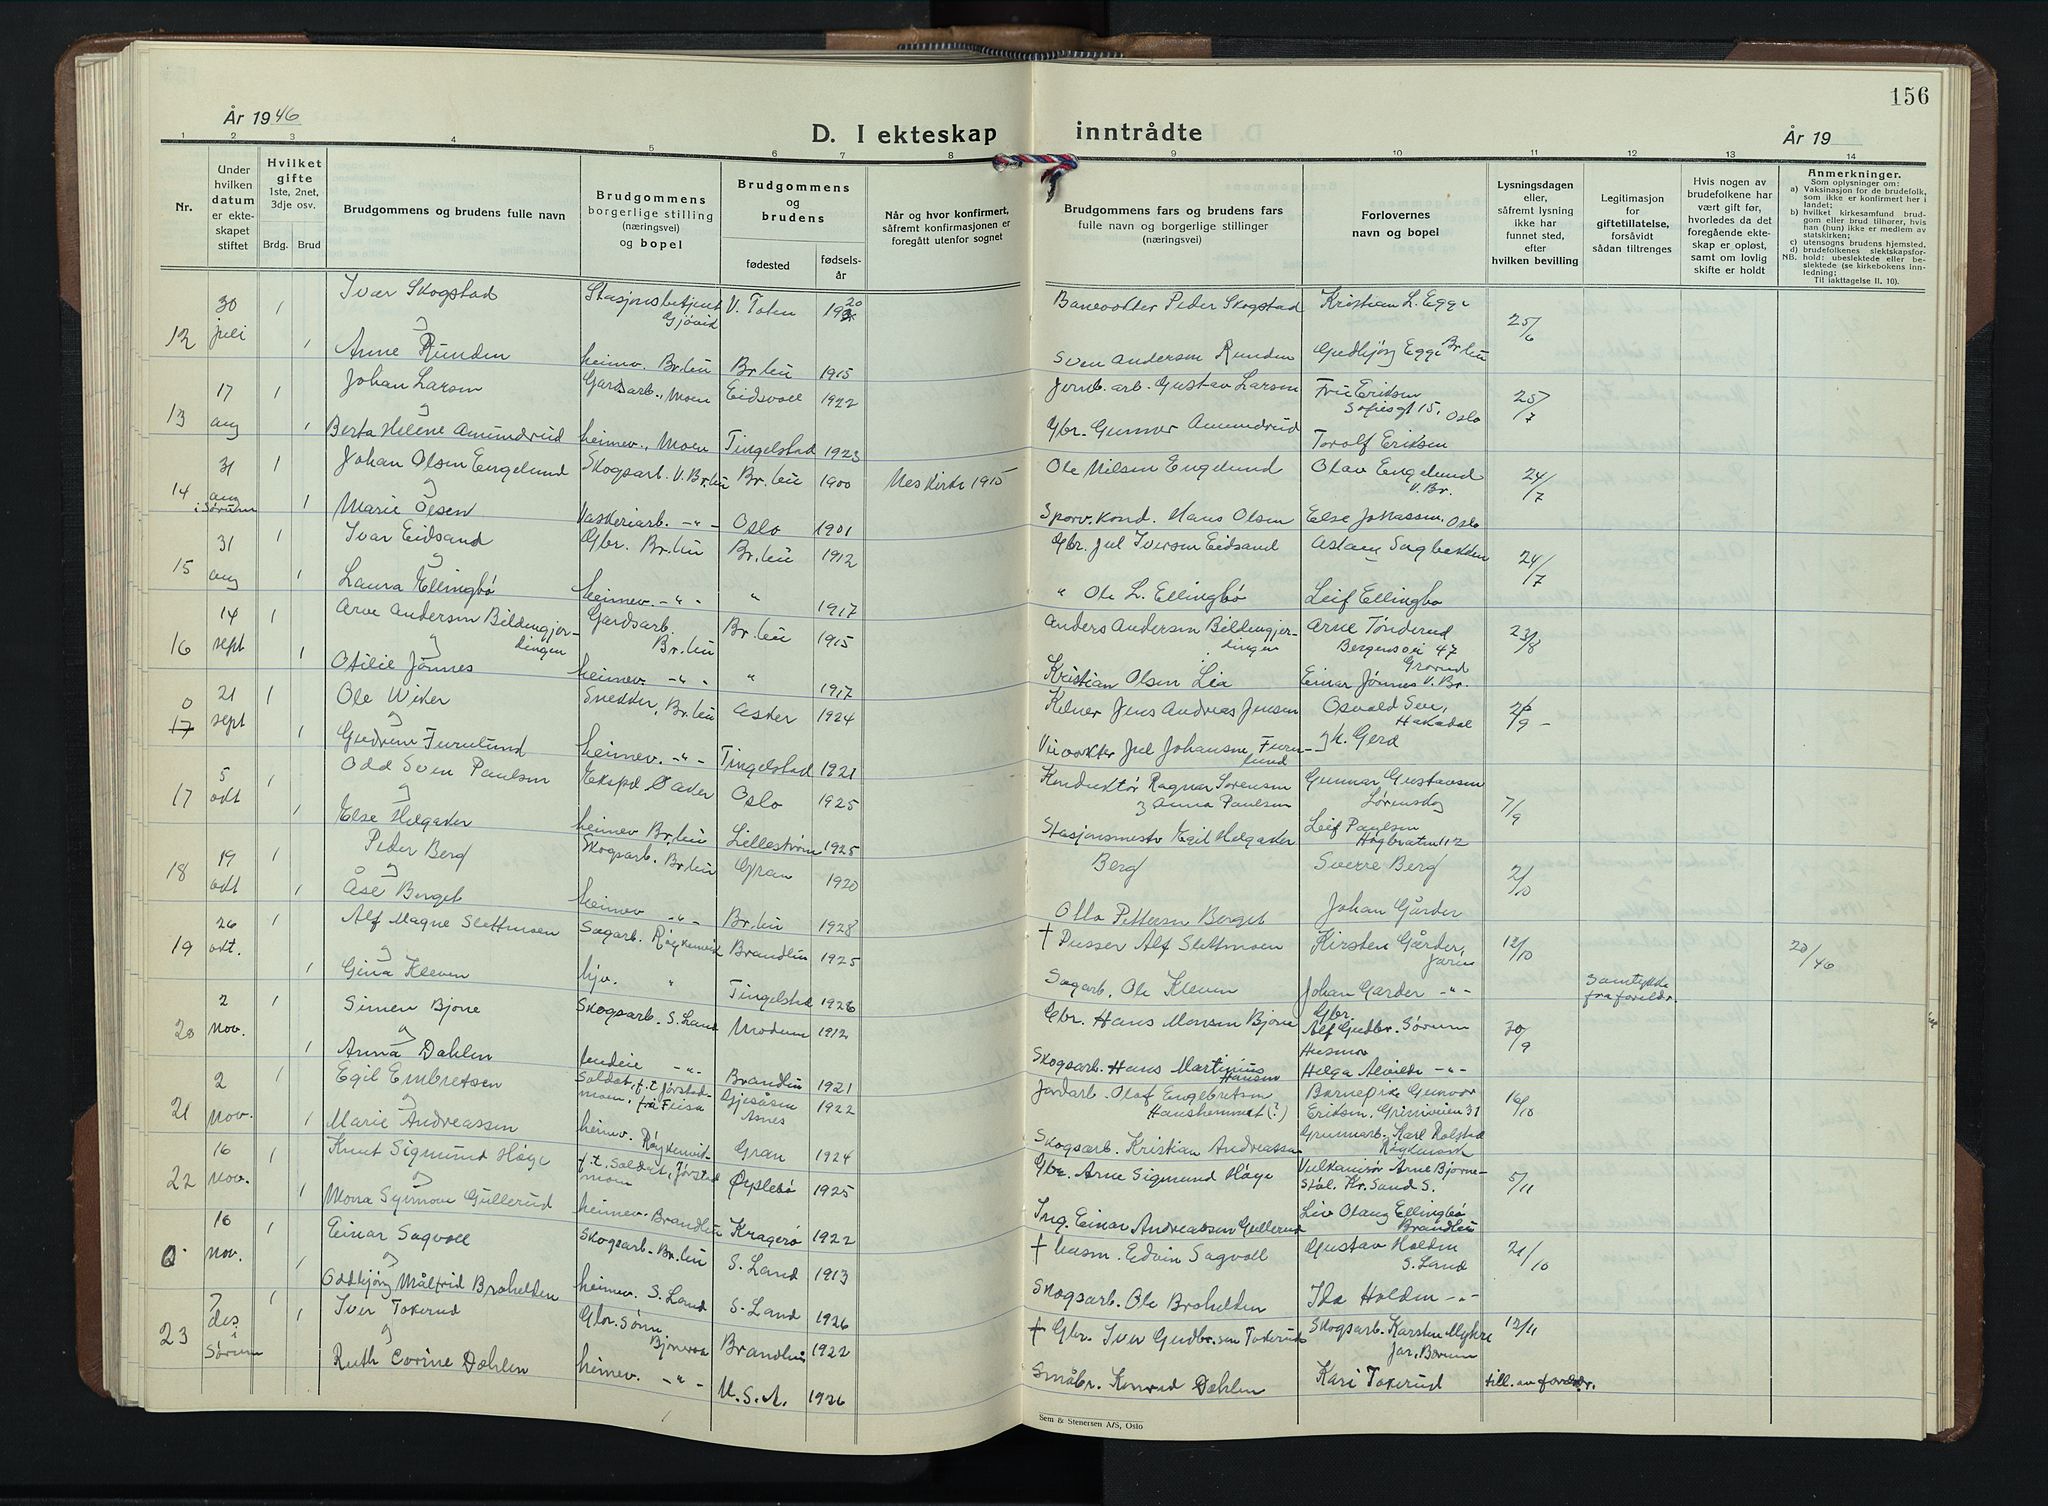 156
År 1946
D. I ekteskap inntrådte
År 19
1 2 3 4 5 6 7 8 9 10 11 12 13 14
Nr.
Under hvilken datum er ekteskapet stiftet
Hvilket gifte 1ste, 2net, 3dje osv.
Brdg. Brud
Brudgommens og brudens fulle navn
Brudgommens borgerlige stilling (næringsvei) og bopel
Brudgommens og brudens
fødested
fødselsår
Når og hvor konfirmert, såfremt konfirmasjonen er foregått utenfor sognet
Brudgommens fars og brudens fars fulle navn og borgerlige stillinger (næringsvei)
Forlovernes navn og bopel
Lysningsdagen eller, såfremt lysning ikke har funnet sted, efter hvilken bevilling
Legitimasjon for giftetillatelse, forsåvidt sådan tiltrenges
Hvis nogen av brudefolkene har vært gift før, hvorledes da det foregående ekteskap er opløst, samt om lovlig skifte er holdt
Anmerkninger.
Som oplysninger om:
a) Vaksinasjon for de brudefolk, som ikke er konfirmert her i landet;
b) hvilket kirkesamfund brudgom eller brud tilhører, hvis han (hun) ikke er medlem av statskirken;
c) utensogns brudens hjemsted,
d) brudefolkenes slektskapsforhold:
NB. ubeslektede eller beslektede (se kirkebokens innledning;
Til iakttagelse II. 10).
12 30 juli 1 Ivar Skogstad Stasjonsbetjent Gjøvik V. Toten 1920 Banevokter Peder Skogstad Kristian L. Egge 25/6
1 Anne Runden heimev. Br.bu Br.bu 1915 Sven Andersen Runden Gudbjørg Egge Br.bu
13 17 aug 1 Johan Larsen Gardsarb., Moen Eidsvoll 1922 Jernb. arb. Gustav Larsen Fru Eriksen Sofiesgt 15, Oslo 25/7
1 Berta Helene Amundrud heimev., Moen Tingelstad 1923 Gbr. Gunnar Amundrud Torolf Eriksen
14 31 aug i Sørum 1 Johan Olsen Engelund Skogsarb. V. Br.bu Br.bu 1900 Nes kirke 1915 Ole Nilsen Engelund Olav Engelund V. Br. 24/7
1 Marie Olsen Vaskeriarb. -"- Oslo 1901 Sporv. kond. Hans Olsen Else Johassen, Oslo
15 31 aug 1 Ivar Eidsand Gbr. Br.bu Br.bu 1912 Gbr. Jul Iversen Eidsand Sagbakken 24/7
1 Laura Ellingbø heimev. -"- " 1917 " Ole L. Ellingbø Leif Ellingbø
16 14 sept 1 Arve Andersen Bildengjerdingen Gardsarb. Br.bu Br.bu 1915 Anders Andersen Bildengjerdingen Arne Tønderud Bergensvei 47 Grorud 23/8
1 Otilie Jønnes heimev. -"- " 1917 Kristian Olsen Lia Einar Jønnes V. Br.
0 17 21 sept 1 Ole Wiker Snekker, Br.bu Asker 1924 Kelner Jens Andreas Jensen Osvald Hakadal
1 Gudrun Furulund heimev. -"- Tingelstad 1921 Veivokter Jul Johansen Furulund Gerd
17 5 okt 1 Odd Sven Paulsen Oslo 1925 Konduktør Ragnar Sørensen & Anna Paulsen Gunnar Gustavsen Lørenskog 7/9
1 Else Helgaker heimev. Br.bu Lillestrøm 1925 Stasjonsmester Egil Helgaker Leif Paulsen Høybråten 112
18 19 okt 1 Peder Berg Skogsarb. Br.bu Gran 1920 Berg Sverre Berg 2/10
1 Åse Berget heimev. -"- Br.bu 1928 Otto Pettersen Berget Johan Gårder
19 26 okt. 1 Alf Magne Slettmoen Sagarb. Røykenvik Brandbu 1925 † Pusser Alf Slettmoen Kirsten Gårder, Jaren 12/10 20/46
1 Gina Kleven hjv. " Tingelstad 1926 Sagarb. Ole Kleven Johan Garder -"- Samtykke fra foreldr.
20 2 nov. 1 Simen Bjone Skogsarb. S. Land Modum 1912 Gbr. Hans Monsen Bjone Gbr. Alf Gudbr. Sørum 20/9
1 Anna Dahlen -"- Brandbu 1921 Skogsarb. Hans Martinius Hansen Husmor Helga Alvilde -"-
21 2 nov. 1 Egil Embretsen Soldat, f.t. Jørstadmoen, fra Flisa Gjesåsen Åsnes 1922 Jordarb. Olaf Engebretsen Hanshemmet (?) Barnepike Gunvor Eriksen, Griniveien 31 16/10
1 Marie Andreassen heimev. Røykenvik Gran 1924 Skogsarb. Kristian Andreassen Grunnarb. Karl Rolstad Røykenvik
22 16 nov. 1 Knut Sigmund Høye f.t. Soldat, Jørstadmoen Øyslebø 1925 Gbr. Arne Sigmund Høye Vulkanisør Arne Bjørnestøl. Kr. Sand S. 5/11
1 Mona Synnøve Gullerud heimev. Brandbu Kragerø 1922 Ing. Einar Andreassen Gullerud Liv Olaug Ellingbø Brandbu
0 16 nov. 1 Einar Sagvoll Skogsarb. Br.bu S. Land 1913 † husm. Edvin Sagvoll Gustav Holden S. Land 21/10
1 Oddbjørg Målfrid Brohelden heimev. S. Land S. Land 1926 Skogsarb. Ole Brohelden Ida Holden -"-
23 7 des i Sørum 1 Iver Tokerud Gbr. sønn Bjoneroa Brandbu 1922 † Gbr. Iver Gudbr.sen Tokerud Skogsarb. Karsten Myhre Jar, Bærum 12/11
1 Ruth Corine Dæhlen heimev. -"- U.S.A. 1926 Småbr. Konrad Dæhlen Kari Tokerud till. av foreldr.
Sem & Stenersen A/S, Oslo